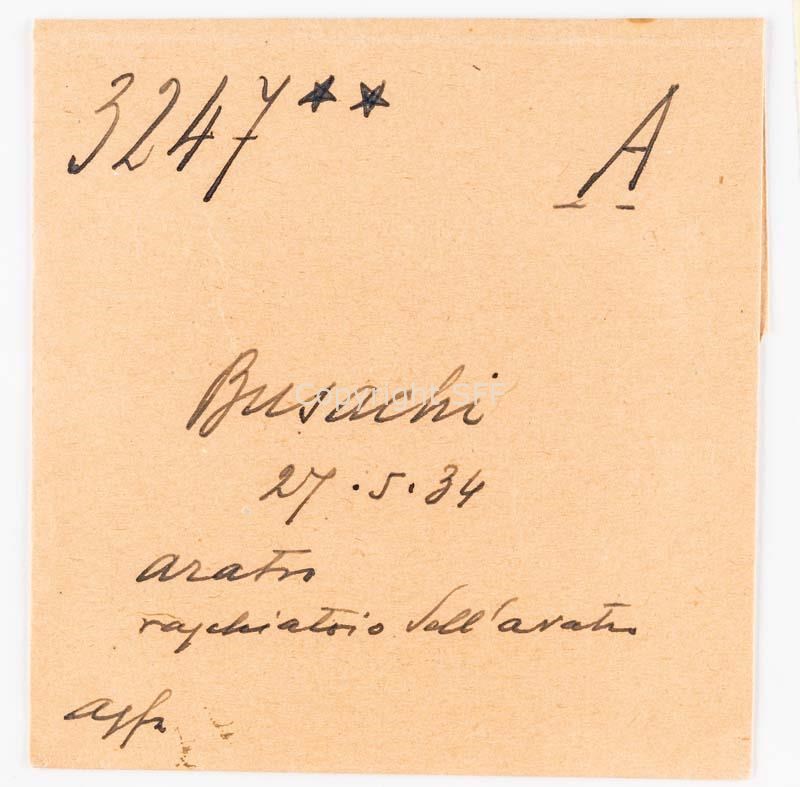 3247** A
Busachi
Copyright SFF
27.5.34
aratro
raschiatoio dell'aratro
agfa